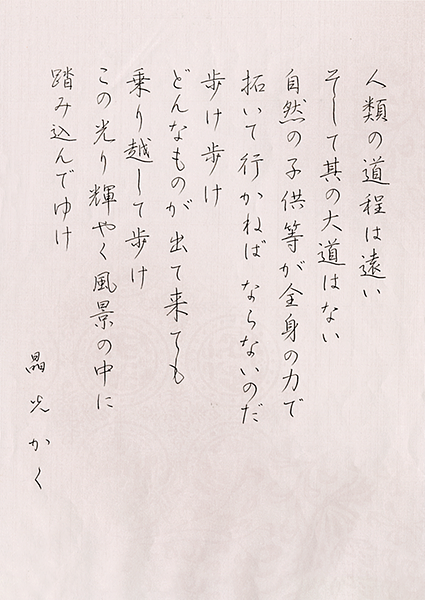 人類の道程は遠い
そして其の大道はない
自然の子供等が全身の力で
拓いて行かねばならないのだ
歩け歩け
どんなものが出て来ても
乗り越して歩け
この光り輝やく風景の中に
踏み込んでゆけ
晶光かく